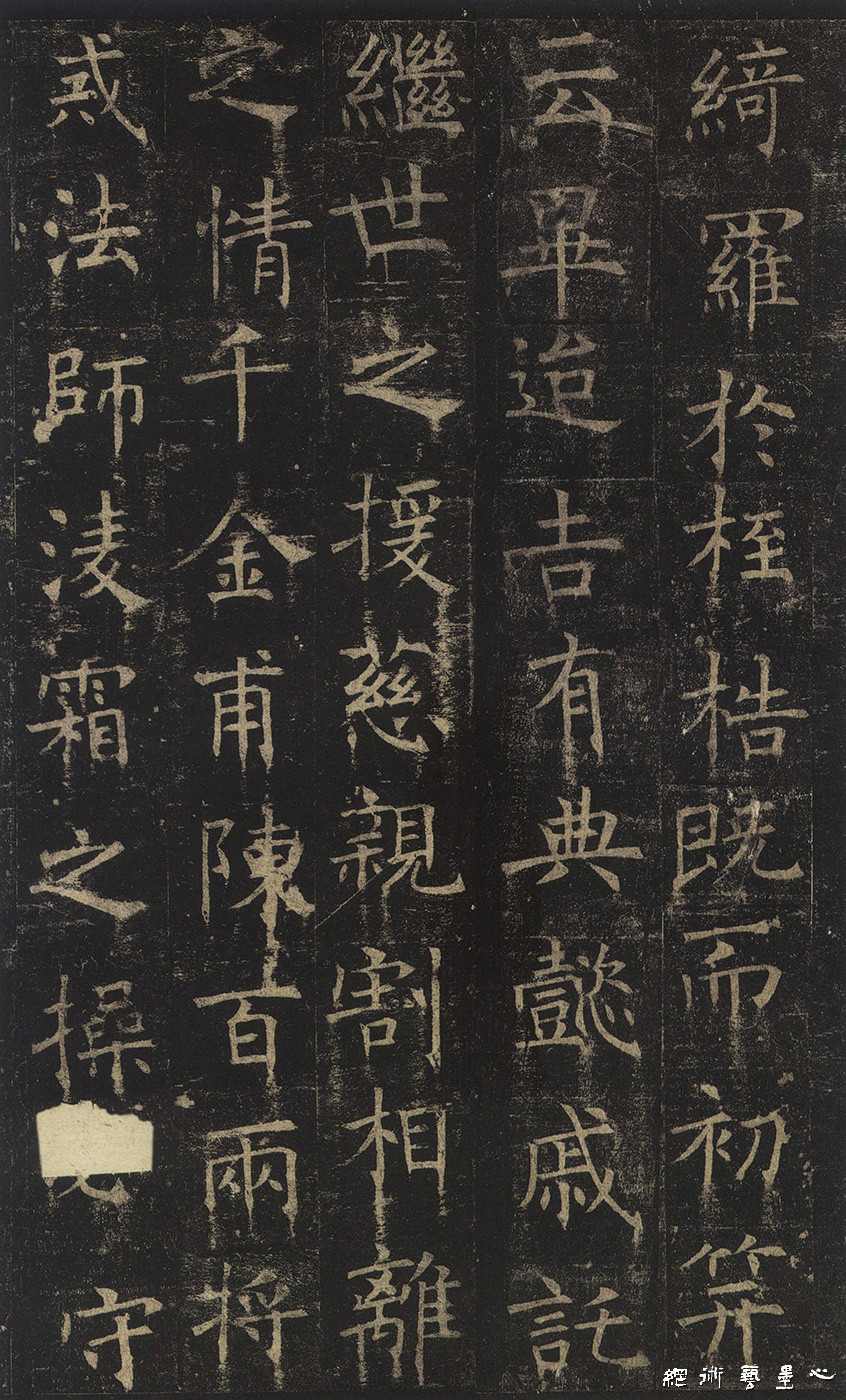 綺羅於桎梏既而初笄
云畢迨吉有典懿戚託
繼世之援慈親割相離
之情千金甫陳百兩將
戒法師淩霜之操守
心墨藝術網